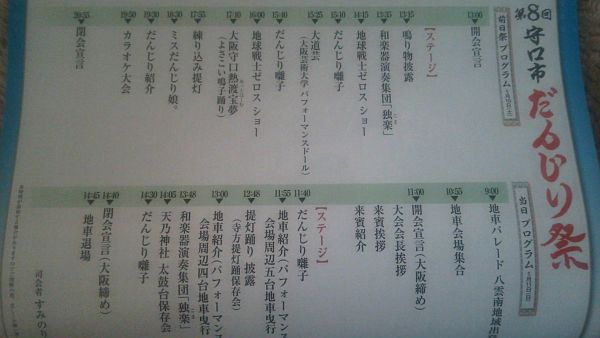 第8回 守口市 だんじり祭
前日祭 プログラム
13:00 開会宣言
【ステージ】
13:15 鳴り物披露
13:35 和楽器演奏集団「独楽」
14:15 地球戦士ゼロス ショー
15:10 だんじり囃子
15:25 大道芸
(大阪芸術大学 パフォーマンスドール)
15:40 だんじり囃子
16:00 地球戦士ゼロス ショー
17:10 大阪守口熱渡宝夢
(よさこい鳴子踊り)
17:55 練り込み提灯
18:30 ミスだんじり娘。
19:30 だんじり紹介
19:50 カラオケ大会
20:55 閉会宣言
当日 プログラム
9:00 地車パレード 八雲南地域出発
10:55 地車会場集合
11:00 開会宣言(大阪締め)
大会会長挨拶
来賓挨拶
来賓紹介
【ステージ】
11:40 だんじり囃子
11:55 地車紹介(パフォーマンス
会場周辺五台地車曳行
12:48 提灯踊り 披露
(寺方提灯踊保存会)
13:00 地車紹介(パフォーマンス
会場周辺四台地車曳行
13:48 和楽器演奏集団「独楽」
14:05 天乃神社 太鼓台保存会
14:30 だんじり囃子
14:40 閉会宣言(大阪締め)
14:45 地車退場
司会者 すみのり